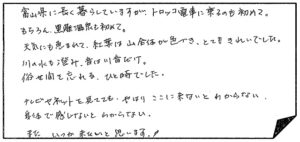 富山県に長く暮らしていますが、トロッコ電車に乗るのも初めて。
もちろん、黒薙温泉も初めて。
天気にも恵まれて、紅葉は山全体が色づき、とてもきれいでした。
川の水も澄み、音は川音だけ。
俗世間を忘れる、ひと時でした。
テレビやネットを見てても、やはりここに来ないとわからない、
身体で感じないとわからない。
また、いつか来たいと思います!